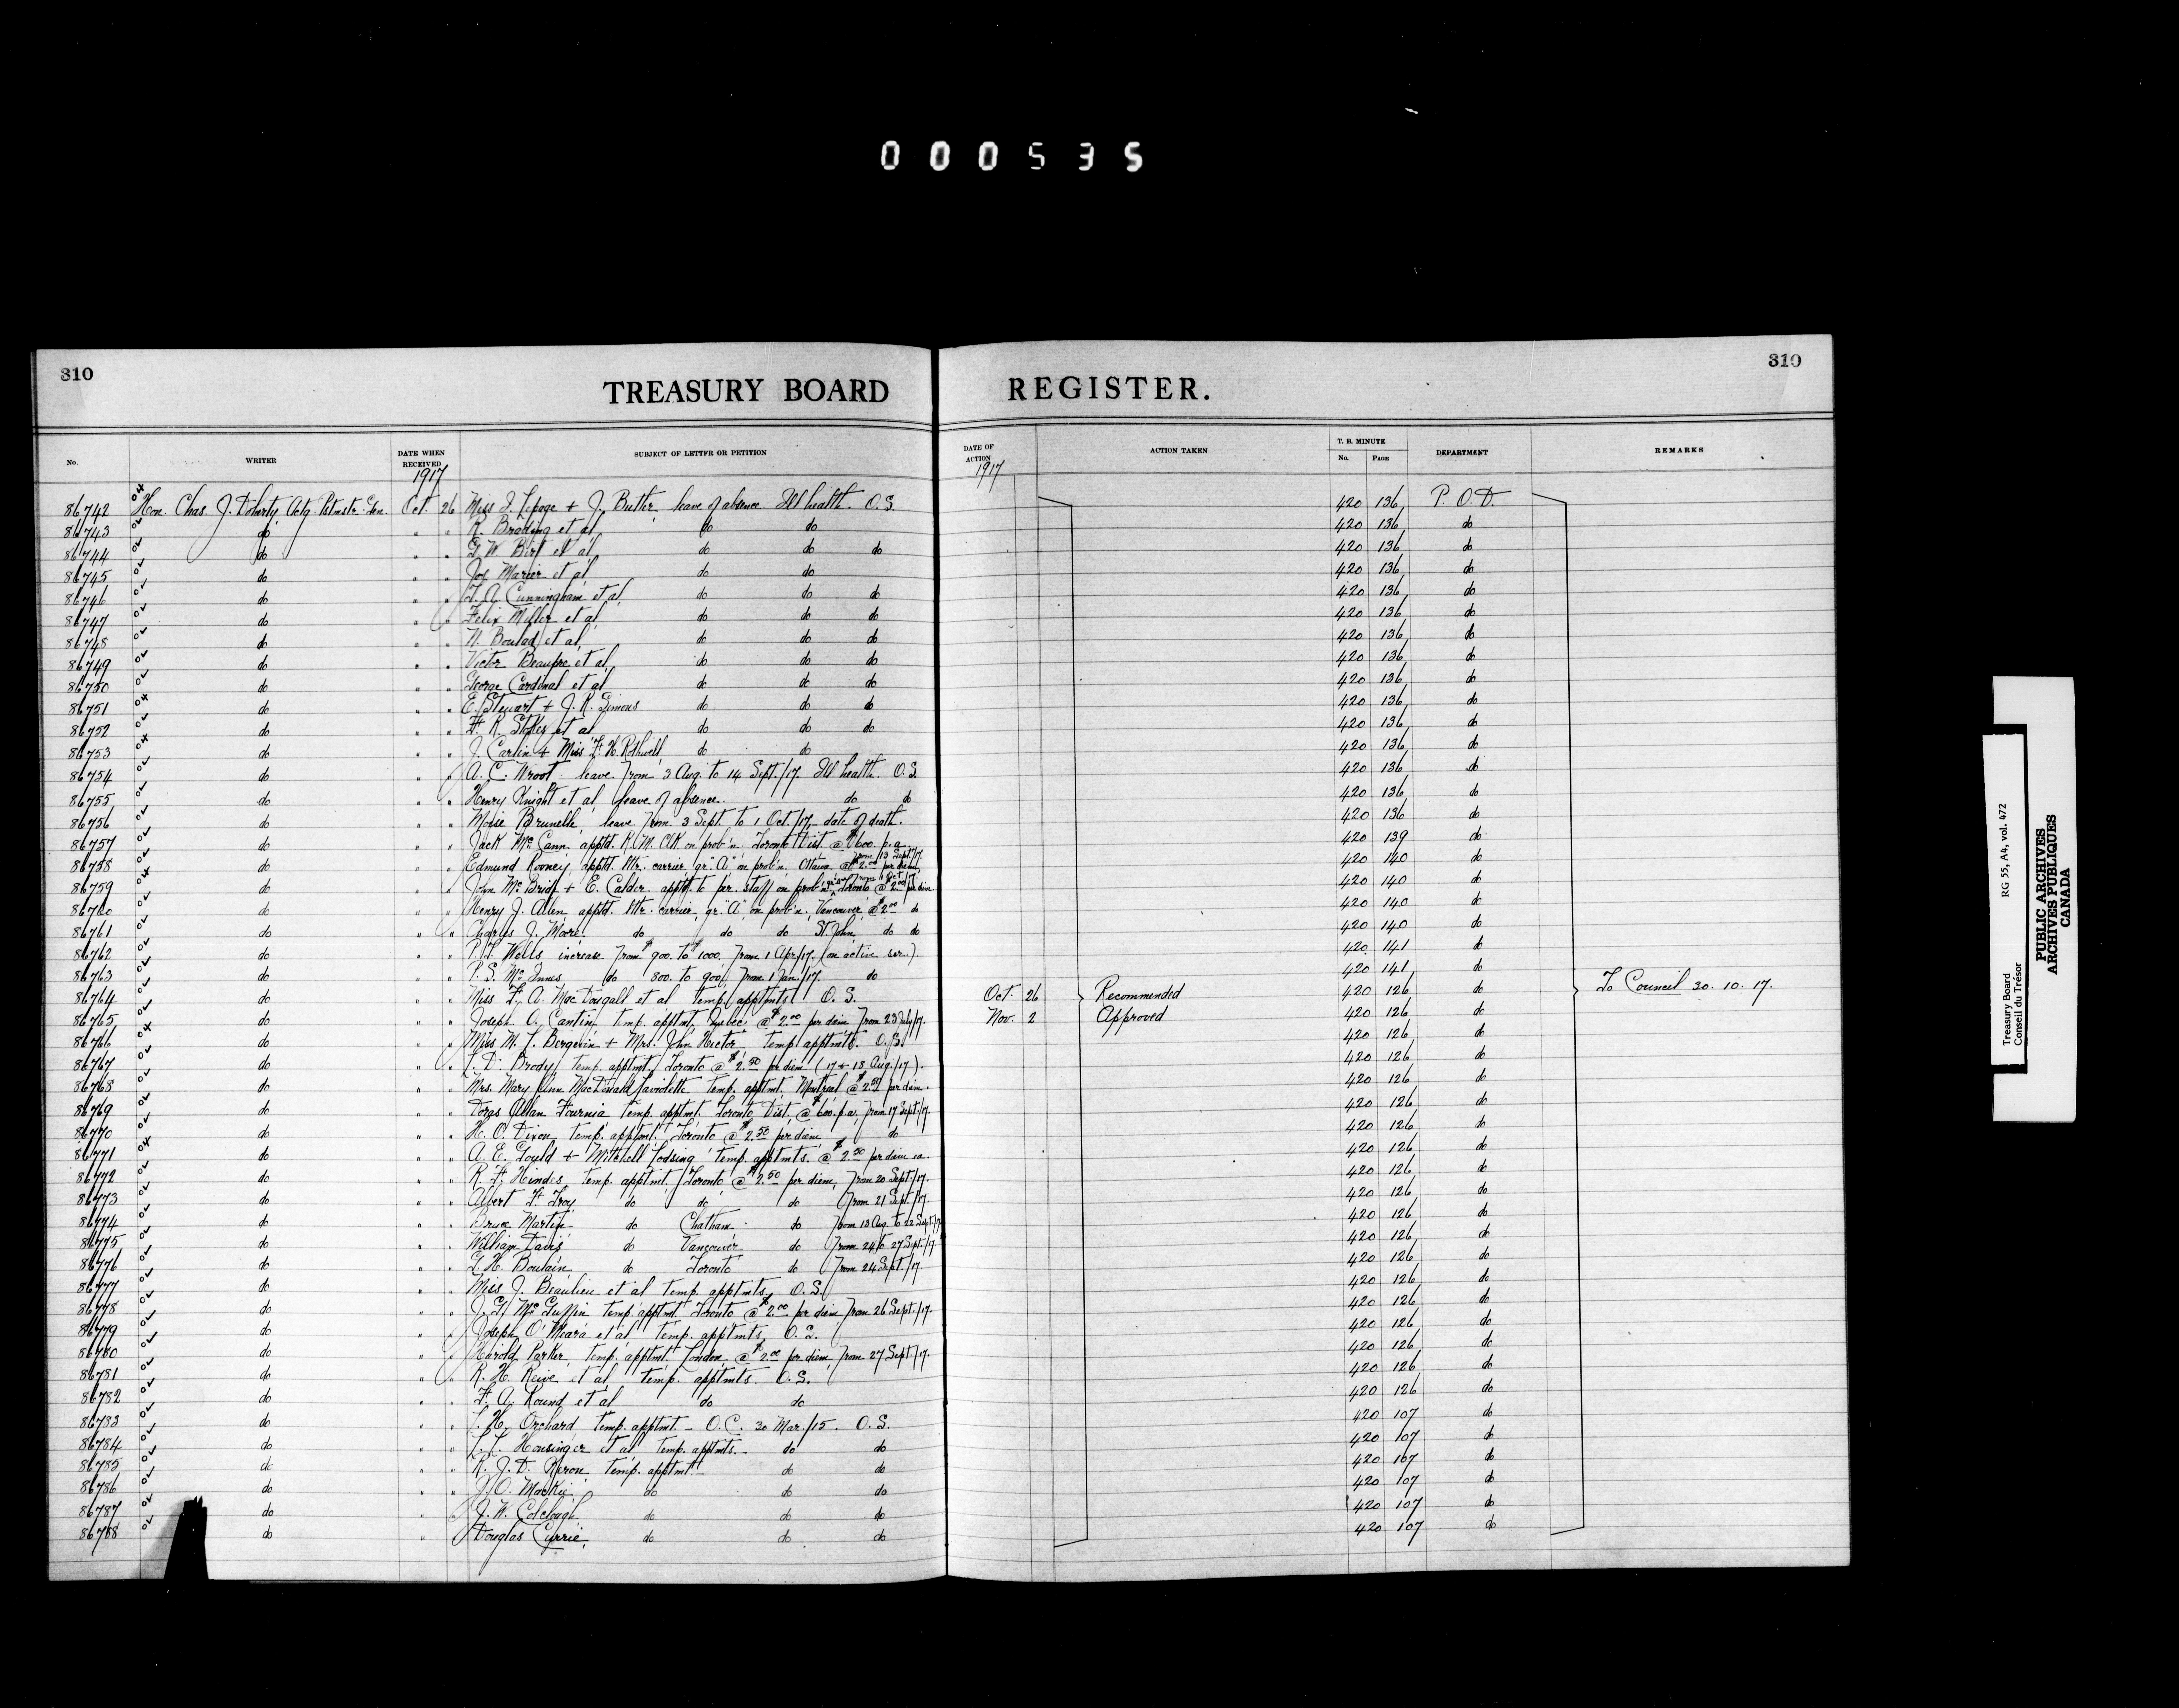 000535
310
310
TREASURY BOARD REGISTER.
No. WRITER DATE WHEN RECEIVED SUBJECT OF LETTER OR PETITION DATE OF ACTION ACTION TAKEN T. B. MINUTE No. PAGE DEPARTMENT REMARKS
1917 1917
86742 Hon. Chas. J. Doherty Actg Pstmstr. Gen. Oct. 26 Miss I. Lepage + J. Butler leave of absence Ill health. O.S. 420 136 P.O.D.
86743 do " " R. Broding et al do do 420 136 do
86744 do " " G. W. Birt et al do do do 420 136 do
86745 do " " Jos. Marier et al do do 420 136 do
86746 do " " T. A. Cunningham et al do do do 420 136 do
86747 do " " Felix Miller et al do do do 420 136 do
86748 do " " N. Boulad et al, do do do 420 136 do
86749 do " " Victor Beaupre et al do do do 420 136 do
86750 do " " George Cardinal et al do do do 420 136 do
86751 do " " E. Stewart + J. R. Simons do do do 420 136 do
86752 do " " F. R. Stokes et al do do do 420 136 do
86753 do " " J. Carlin + Miss F. H. Rothwell do do 420 136 do
86754 do " " A. C. Wroot leave from 3 Aug. to 14 Sept./17 Ill health. O.S. 420 136 do
86755 do " " Henry Knight et al leave of absence. do do 420 136 do
86756 do " " Moise Brunelle leave from 3 Sept. to 1 Oct/17 date of death. 420 136 do
86757 do " " Jack McCann apptd. R.M. Clk on prob'n. Toronto Dist. @ $600. p.a. 420 139 do
86758 do " " Edmund Rooney apptd. ltr. carrier gr. "A" on prob'n. Ottawa @ $2.00 per diem from 13 Sept/17. 420 140 do
86759 do " " John McBride + E. Calder apptd. to per. staff on prob'n Toronto @ $2.00 per diem 420 140 do
86760 do " " Henry J. Allen apptd. ltr. carrier, gr. "A" on prob'n, Vancouver @ $2.00 do 420 140 do
86761 do " " Charles J. Moore do do do St. John do do 420 140 do
86762 do " " P. T. Wells increase from $900. to $1000. from 1 Apr/17. (on active ser.) 420 141 do
86763 do " " P. S. McInnes do 800. to 900, from 1 Jan./17. do 420 141 do
86764 do " " Miss F. A. MacDougall et al temp. apptmts. O.S. Oct. 26 Recommended 420 126 do To Council 30. 10. 17.
86765 do " " Joseph A. Cantin, temp. apptmt. Quebec @ $2.00 per diem from 23 July/17. Nov. 2 Approved 420 126 do
86766 do " " Miss M. L. Bergevin + Mrs. John Hector temp. apptmts. O.S. 420 126 do
86767 do " " L. D. Brody temp. apptmt. Toronto @ $2.50 per diem (17 + 18 Aug./17). 420 126 do
86768 do " " Mrs. Mary Ann MacDonald Laviolette temp. apptmt. Montreal @ $2.50 per diem. 420 126 do
86769 do " " Allan Fournia temp. apptmt. Toronto Dist. @ $600. p.a. from 17 Sept/17. 420 126 do
86770 do " " H. O. Dixon temp. apptmt. Toronto @ $2.50 per diem do 420 126 do
86771 do " " A. E. Gould + Mitchell Lodsing temp. apptmts. @ $2.50 per diem ea. 420 126 do
86772 do " " R. F. Hindes temp. apptmt. Toronto @ $2.50 per diem, from 20 Sept./17. 420 126 do
86773 do " " Albert F. Troy do do do from 21 Sept./17. 420 126 do
86774 do " " Bruce Martin do Chatham do from 13 Aug. to 22 Sept./17 420 126 do
86775 do " " William Davis do Vancouver do from 24 to 27 Sept./17. 420 126 do
86776 do " " L. H. Boulain do Toronto do from 24 Sept./17. 420 126 do
86777 do " " Miss J. Beaulieu et al temp. apptmts. O.S. 420 126 do
86778 do " " J. G. McGuffin temp. apptmt. Toronto @ $2.00 per diem from 26 Sept./17. 420 126 do
86779 do " " Joseph O'Meara et al temp. apptmts. O.S. 420 126 do
86780 do " " Harold Parker temp. apptmt. London @ $2.00 per diem from 27 Sept/17. 420 126 do
86781 do " " R. H. Reive et al temp. apptmts. O.S. 420 126 do
86782 do " " F. A. Round et al do do 420 126 do
86783 do " " Orchard temp. apptmt. - O.C. 30 Mar./15. O.S. 420 107 do
86784 do " " Housinger et al temp. apptmts. - do do 420 107 do
86785 do " " R. J. D. temp. apptmt. - do do 420 107 do
86786 do " " J. O. Mackie do do do 420 107 do
86787 do " " J. W. Colclough do do do 420 107 do
86788 do " " Douglas Currie, do do do 420 107 do
Treasury Board RG 55, A4, vol. 472
Conseil du Trésor
PUBLIC ARCHIVES
ARCHIVES PUBLIQUES
CANADA